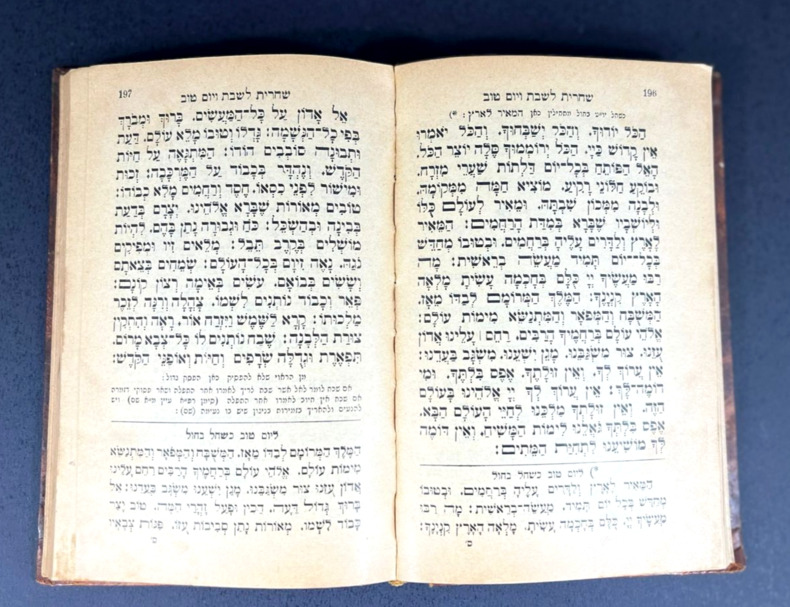 196
שחרית לשבת ויום טוב
כשחל יו״ט בחול מתחילין כאן המאיר לארץ: *)
הַכֹּל יוֹדוּךָ. וְהַכֹּל יְשַׁבְּחוּךָ. וְהַכֹּל יֹאמְרוּ
אֵין קָדוֹשׁ כַּיְיָ. הַכֹּל יְרוֹמְמוּךָ סֶּלָה יוֹצֵר הַכֹּל.
הָאֵל הַפּוֹתֵחַ בְּכָל־יוֹם דַּלְתוֹת שַׁעֲרֵי מִזְרָח.
וּבוֹקֵעַ חַלּוֹנֵי רָקִיעַ. מוֹצִיא חַמָּה מִמְּקוֹמָהּ.
וּלְבָנָה מִמְּכוֹן שִׁבְתָּהּ. וּמֵאִיר לָעוֹלָם כֻּלּוֹ
וּלְיוֹשְׁבָיו שֶׁבָּרָא בְּמִדַּת הָרַחֲמִים: הַמֵּאִיר
לָאָרֶץ וְלַדָּרִים עָלֶיהָ בְּרַחֲמִים. וּבְטוּבוֹ מְחַדֵּשׁ
בְּכָל־יוֹם תָּמִיד מַעֲשֵׂה בְרֵאשִׁית: מָה
רַבּוּ מַעֲשֶׂיךָ יְיָ כֻּלָּם בְּחָכְמָה עָשִׂיתָ מָלְאָה
הָאָרֶץ קִנְיָנֶךָ: הַמֶּלֶךְ הַמְרוֹמָם לְבַדּוֹ מֵאָז.
הַמְשֻׁבָּח וְהַמְפֹאָר וְהַמִּתְנַשֵּׂא מִימוֹת עוֹלָם:
אֱלֹהֵי עוֹלָם בְּרַחֲמֶיךָ הָרַבִּים. רַחֵם עָלֵינוּ אֲדוֹן
עֻזֵּנוּ. צוּר מִשְׂגַּבֵּנוּ. מָגֵן יִשְׁעֵנוּ. מִשְׂגָּב בַּעֲדֵנוּ:
אֵין עֲרוֹךְ לָךְ. וְאֵין זוּלָתֶךָ. אֶפֶס בִּלְתֶּךָ. וּמִי
דּוֹמֶה־לָּךְ: אֵין עֲרוֹךְ לָךְ יְיָ אֱלֹהֵינוּ בָּעוֹלָם
הַזֶּה. וְאֵין זוּלָתְךָ מַלְכֵּנוּ לְחַיֵּי הָעוֹלָם הַבָּא.
אֶפֶס בִּלְתְּךָ גֹּאֲלֵנוּ לִימוֹת הַמָּשִׁיחַ. וְאֵין דּוֹמֶה
לְּךָ מוֹשִׁיעֵנוּ לִתְחִיַּת הַמֵּתִים:
*) ליום טוב כשחל בחול
הַמֵּאִיר לָאָרֶץ וְלַדָּרִים עָלֶיהָ בְּרַחֲמִים. וּבְטוּבוֹ
מְחַדֵּשׁ בְּכָל יוֹם תָּמִיד. מַעֲשֵׂה־בְרֵאשִׁית: מָה רַבּוּ
מַעֲשֶׂיךָ יְיָ. כֻּלָּם בְּחָכְמָה עָשִׂיתָ. מָלְאָה הָאָרֶץ קִנְיָנֶךָ:
197
שחרית לשבת ויום טוב
אֵל אָדוֹן עַל כָּל־הַמַּעֲשִׂים. בָּרוּךְ וּמְבֹרָךְ
בְּפִי כָל־הַנְּשָׁמָה: גָּדְלוֹ וְטוּבוֹ מָלֵא עוֹלָם. דַּעַת
וּתְבוּנָה סוֹבְבִים הוֹדוֹ: הַמִּתְגָּאֶה עַל חַיּוֹת
הַקֹּדֶשׁ. וְנֶהְדָּר בְּכָבוֹד עַל הַמֶּרְכָּבָה: זְכוּת
וּמִישׁוֹר לִפְנֵי כִסְאוֹ. חֶסֶד וְרַחֲמִים מָלֵא כְבוֹדוֹ:
טוֹבִים מְאוֹרוֹת שֶׁבָּרָא אֱלֹהֵינוּ. יְצָרָם בְּדַעַת
בְּבִינָה וּבְהַשְׂכֵּל: כֹּחַ וּגְבוּרָה נָתַן בָּהֶם. לִהְיוֹת
מוֹשְׁלִים בְּקֶרֶב תֵּבֵל: מְלֵאִים זִיו וּמְפִיקִים
נֹגַהּ. נָאֶה זִיוָם בְּכָל־הָעוֹלָם: שְׂמֵחִים בְּצֵאתָם
וְשָׂשִׂים בְּבוֹאָם. עֹשִׂים בְּאֵימָה רְצוֹן קוֹנָם:
פְּאֵר וְכָבוֹד נוֹתְנִים לִשְׁמוֹ. צָהֳלָה וְרִנָּה לְזֵכֶר
מַלְכוּתוֹ: קָרָא לַשֶּׁמֶשׁ וַיִּזְרַח אוֹר. רָאָה וְהִתְקִין
צוּרַת הַלְּבָנָה: שֶׁבַח נוֹתְנִים לוֹ כָּל־צְבָא מָרוֹם.
תִּפְאֶרֶת וּגְדֻלָּה שְׂרָפִים וְחַיּוֹת וְאוֹפַנֵּי הַקֹּדֶשׁ:
מן הראוי שלא להפסיק כאן הפסק גדול:
אם שכח לומר לאל אשר שבת צריך לאמרו אחר התפלה ושאר פסוקי דזמרה
אם שכח אין חיוב לאמרו אחר התפלה ויש
ליום טוב כשחל בחול
הַמֶּלֶךְ הַמְרוֹמָם לְבַדּוֹ מֵאָז. הַמְשֻׁבָּח וְהַמְפֹאָר וְהַמִּתְנַשֵּׂא
מִימוֹת עוֹלָם. אֱלֹהֵי עוֹלָם בְּרַחֲמֶיךָ הָרַבִּים רַחֵם עָלֵינוּ
אֲדוֹן עֻזֵּנוּ צוּר מִשְׂגַּבֵּנוּ. מָגֵן יִשְׁעֵנוּ מִשְׂגָּב בַּעֲדֵנוּ: אֵל
בָּרוּךְ גְּדוֹל דֵּעָה. הֵכִין וּפָעַל זָהֳרֵי חַמָּה. טוֹב יָצַר
כָּבוֹד לִשְׁמוֹ. מְאוֹרוֹת נָתַן סְבִיבוֹת עֻזּוֹ. פִּנּוֹת צְבָאָיו